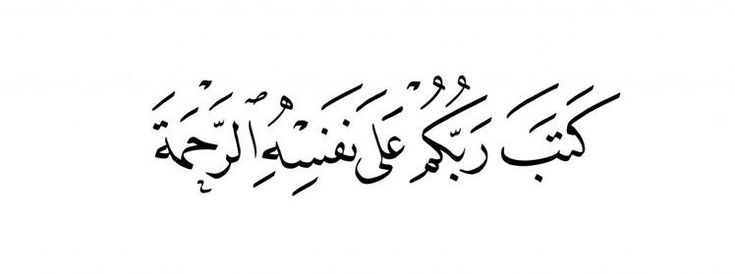 كَتَبَ رَبُّكُمْ عَلَىٰ نَفْسِهِ ٱلرَّحْمَةَ